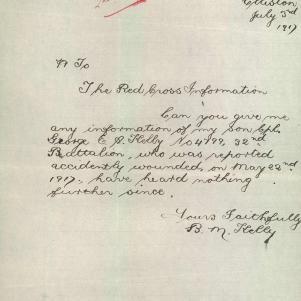 Elliston
July 3rd
1917
To
The Red Cross Information
Can you give me
any information of my son Cpl.
George E S Kelly No 4199, 32nd
Battalion, who was reported
accidently wounded on May 22nd
1917. have heard nothing
further since.
Yours Faithfully
B. M. Kelly